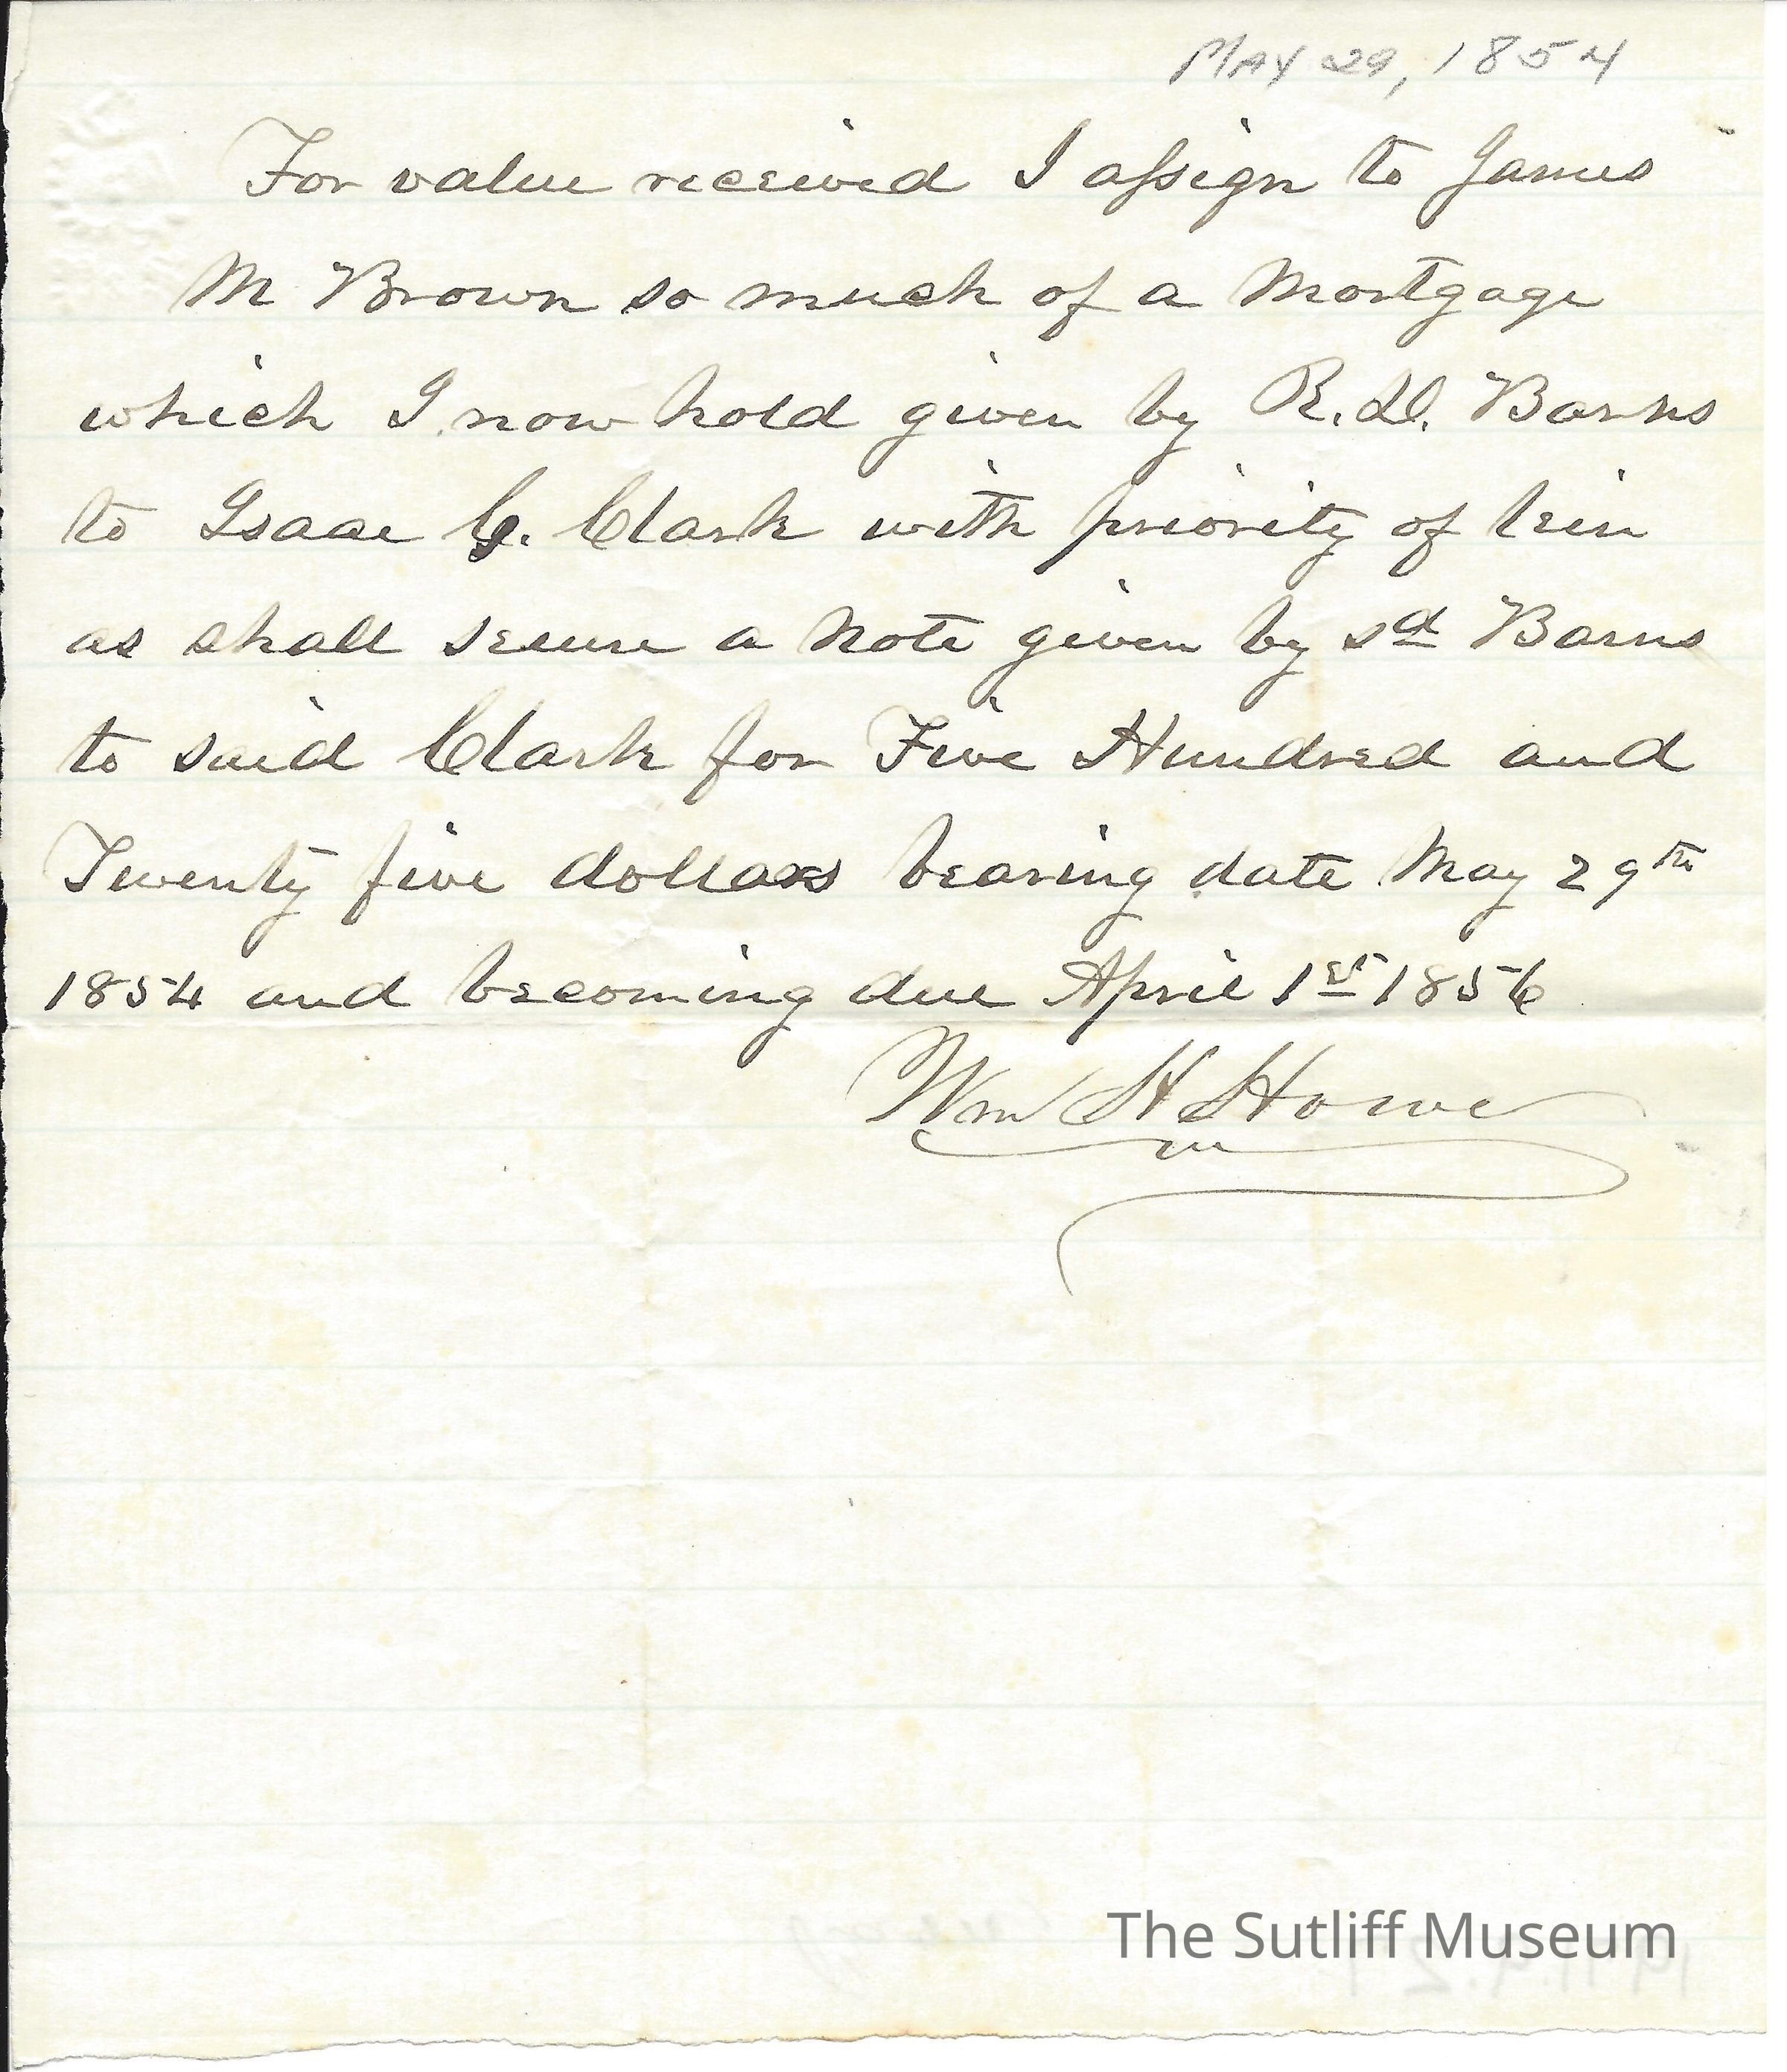 MAY 29, 1854
For value received I assign to James
M Brown so much of a Mortgage
which I now hold given by R. D. Barns
to Isaac C. Clark with priority of lein
as shall secure a Note given by sd Barns
to said Clark for Five Hundred and
Twenty five dollars bearing date May 29th
1854 and becoming due April 1st 1856
Wm H Howe
The Sutliff Museum